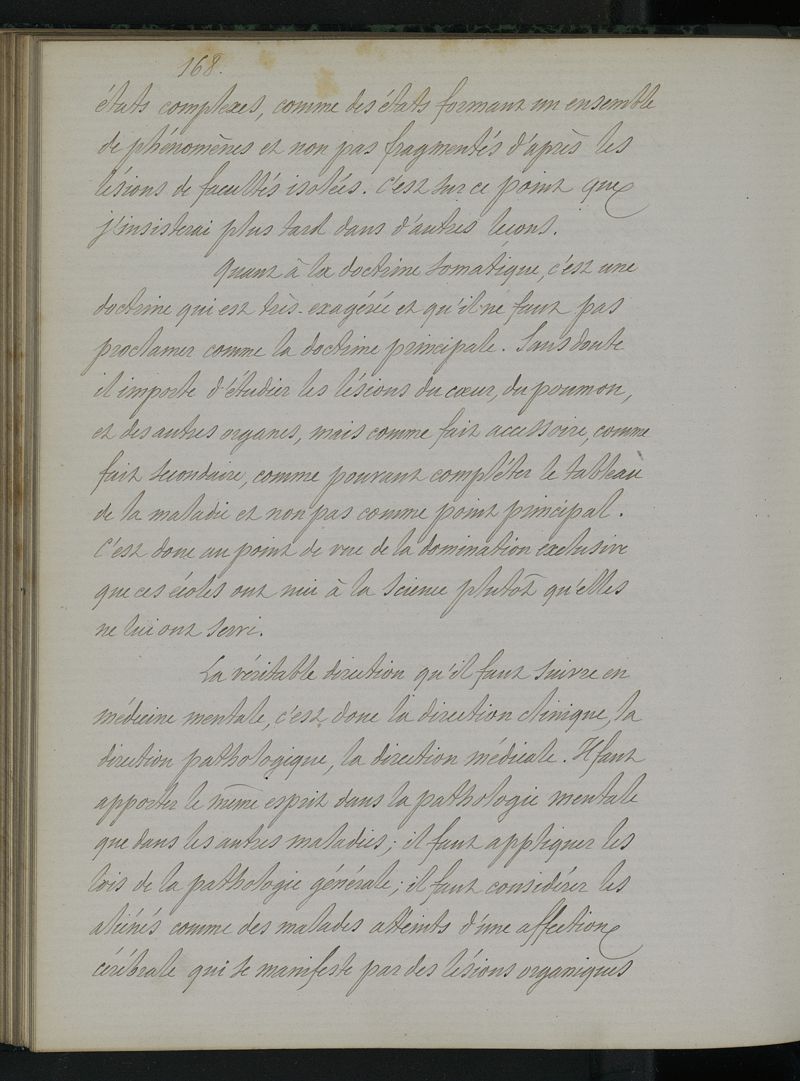 168.
états complexes, comme des états formant un ensemble
de phénomènes et non pas fragmentés d'après les
lésions de facultés isolées. C'est sur ce point que
j'insisterai plus tard dans d'autres leçons.
Quant à la doctrine somatique, c'est une
doctrine qui est très-exagérée et qu'il ne faut pas
proclamer comme la doctrine principale. Sans doute
il importe d'étudier les lésions du cœur, du poumon,
et des autres organes, mais comme fait accessoire, comme
fait secondaire, comme pouvant compléter le tableau
de la maladie et non pas comme point principal.
C'est donc au point de vue de la domination exclusive
que ces écoles ont nui à la science plutôt qu'elles
ne lui ont servi.
La véritable direction qu'il faut suivre en
médecine mentale, c'est donc la direction clinique, la
direction pathologique, la direction médicale. Il faut
apporter le même esprit dans la pathologie mentale
que dans les autres maladies; il faut appliquer les
lois de la pathologie générale; il faut considérer les
aliénés comme des malades atteints d'une affection
cérébrale qui se manifeste par des lésions organiques